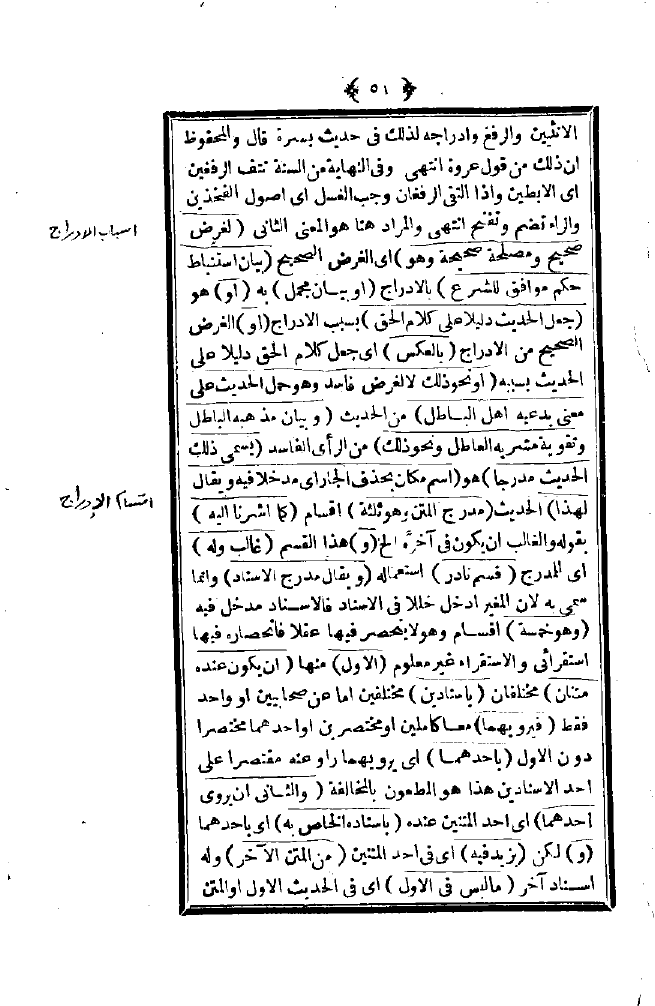 ٥١
الانثيين والرفغ وادراجه لذلك فى حديث بسرة قال والمحفوظ
ان ذلك من قول عروة انتهى وفى النهاية من السنة نتف الرفغين
اى الابطين واذا التقى الرفغان وجب الغسل اى اصول الفخذين
والراء تضم وتفتح انتهى والمراد هنا هو المعنى الثانى ( لغرض
اسباب الادراج
صحيح ومصلحة صحيحة وهو ) اى الغرض الصحيح ( بيان استنباط
حكم موافق للشرع ) بالادراج ( او بيان مجمل ) به ( او ) هو
( جعل الحديث دليلا على كلام الحق ) بسبب الادراج ( او ) الغرض
الصحيح من الادراج ( بالعكس ) اى جعل كلام الحق دليلا على
الحديث بسببه ( او نحو ذلك لا لغرض فاسد وهو حمل الحديث على
معنى يدعيه اهل الباطل ) من الحديث ( وبيان مذهبه الباطل
وتقوية مشربه العاطل ونحو ذلك ) من الرأى الفاسد ( يسمى ذلك
الحديث مدرجا ) هو ( اسم مكان بحذف الجار اى مدخلا فيه ويقال
اقسام الادراج
لهذا ) الحديث ( مدرج المتن وهو ثلثة ) اقسام ( كما اشرنا اليه )
بقوله والغالب ان يكون فى آخره الخ ( و ) هذا القسم ( غالب وله )
اى المدرج ( قسم نادر ) استعماله ( ويقال مدرج الاسناد ) وانما
سمى به لان المغير ادخل خللا فى الاسناد فالاسناد مدخل فيه
( وهو خمسة ) اقسام وهو لا ينحصر فيها عقلا فانحصاره فيها
استقرائى والاستقراء غير معلوم ( الاول ) منها ( ان يكون عنده
متنان ) مختلفان ( باسنادين ) مختلفين اما عن صحابيين او واحد
فقط ( فيرويهما ) معا كاملين او مختصرين او احدهما مختصرا
دون الاول ( باحدهما ) اى يرويهما راو عنه مقتصرا على
احد الاسنادين هذا هو المطعون بالمخالفة ( والثانى ان يروى
احدهما ) اى احد المتنين عنده ( باسناده الخاص به ) اى باحدهما
( و ) لكن ( يزيد فيه ) اى فى احد المتنين ( من المتن الآخر ) وله
اسناد آخر ( ما ليس فى الاول ) اى فى الحديث الاول او المتن